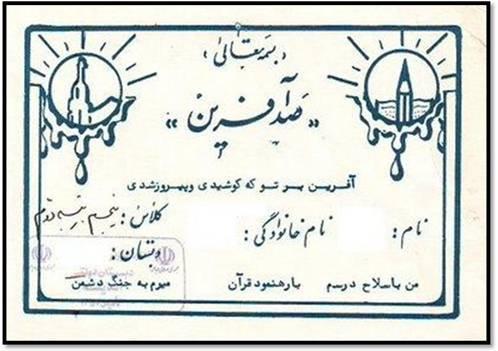 «بسمه تعالی»
«صد آفرین»
آفرین بر تو که کوشیدی و پیروز شدی
نام: نام خانوادگی: کلاس: پنجم
دبستان:
من با سلاح درسم با رهنمود قرآن میرم به جنگ دشمن